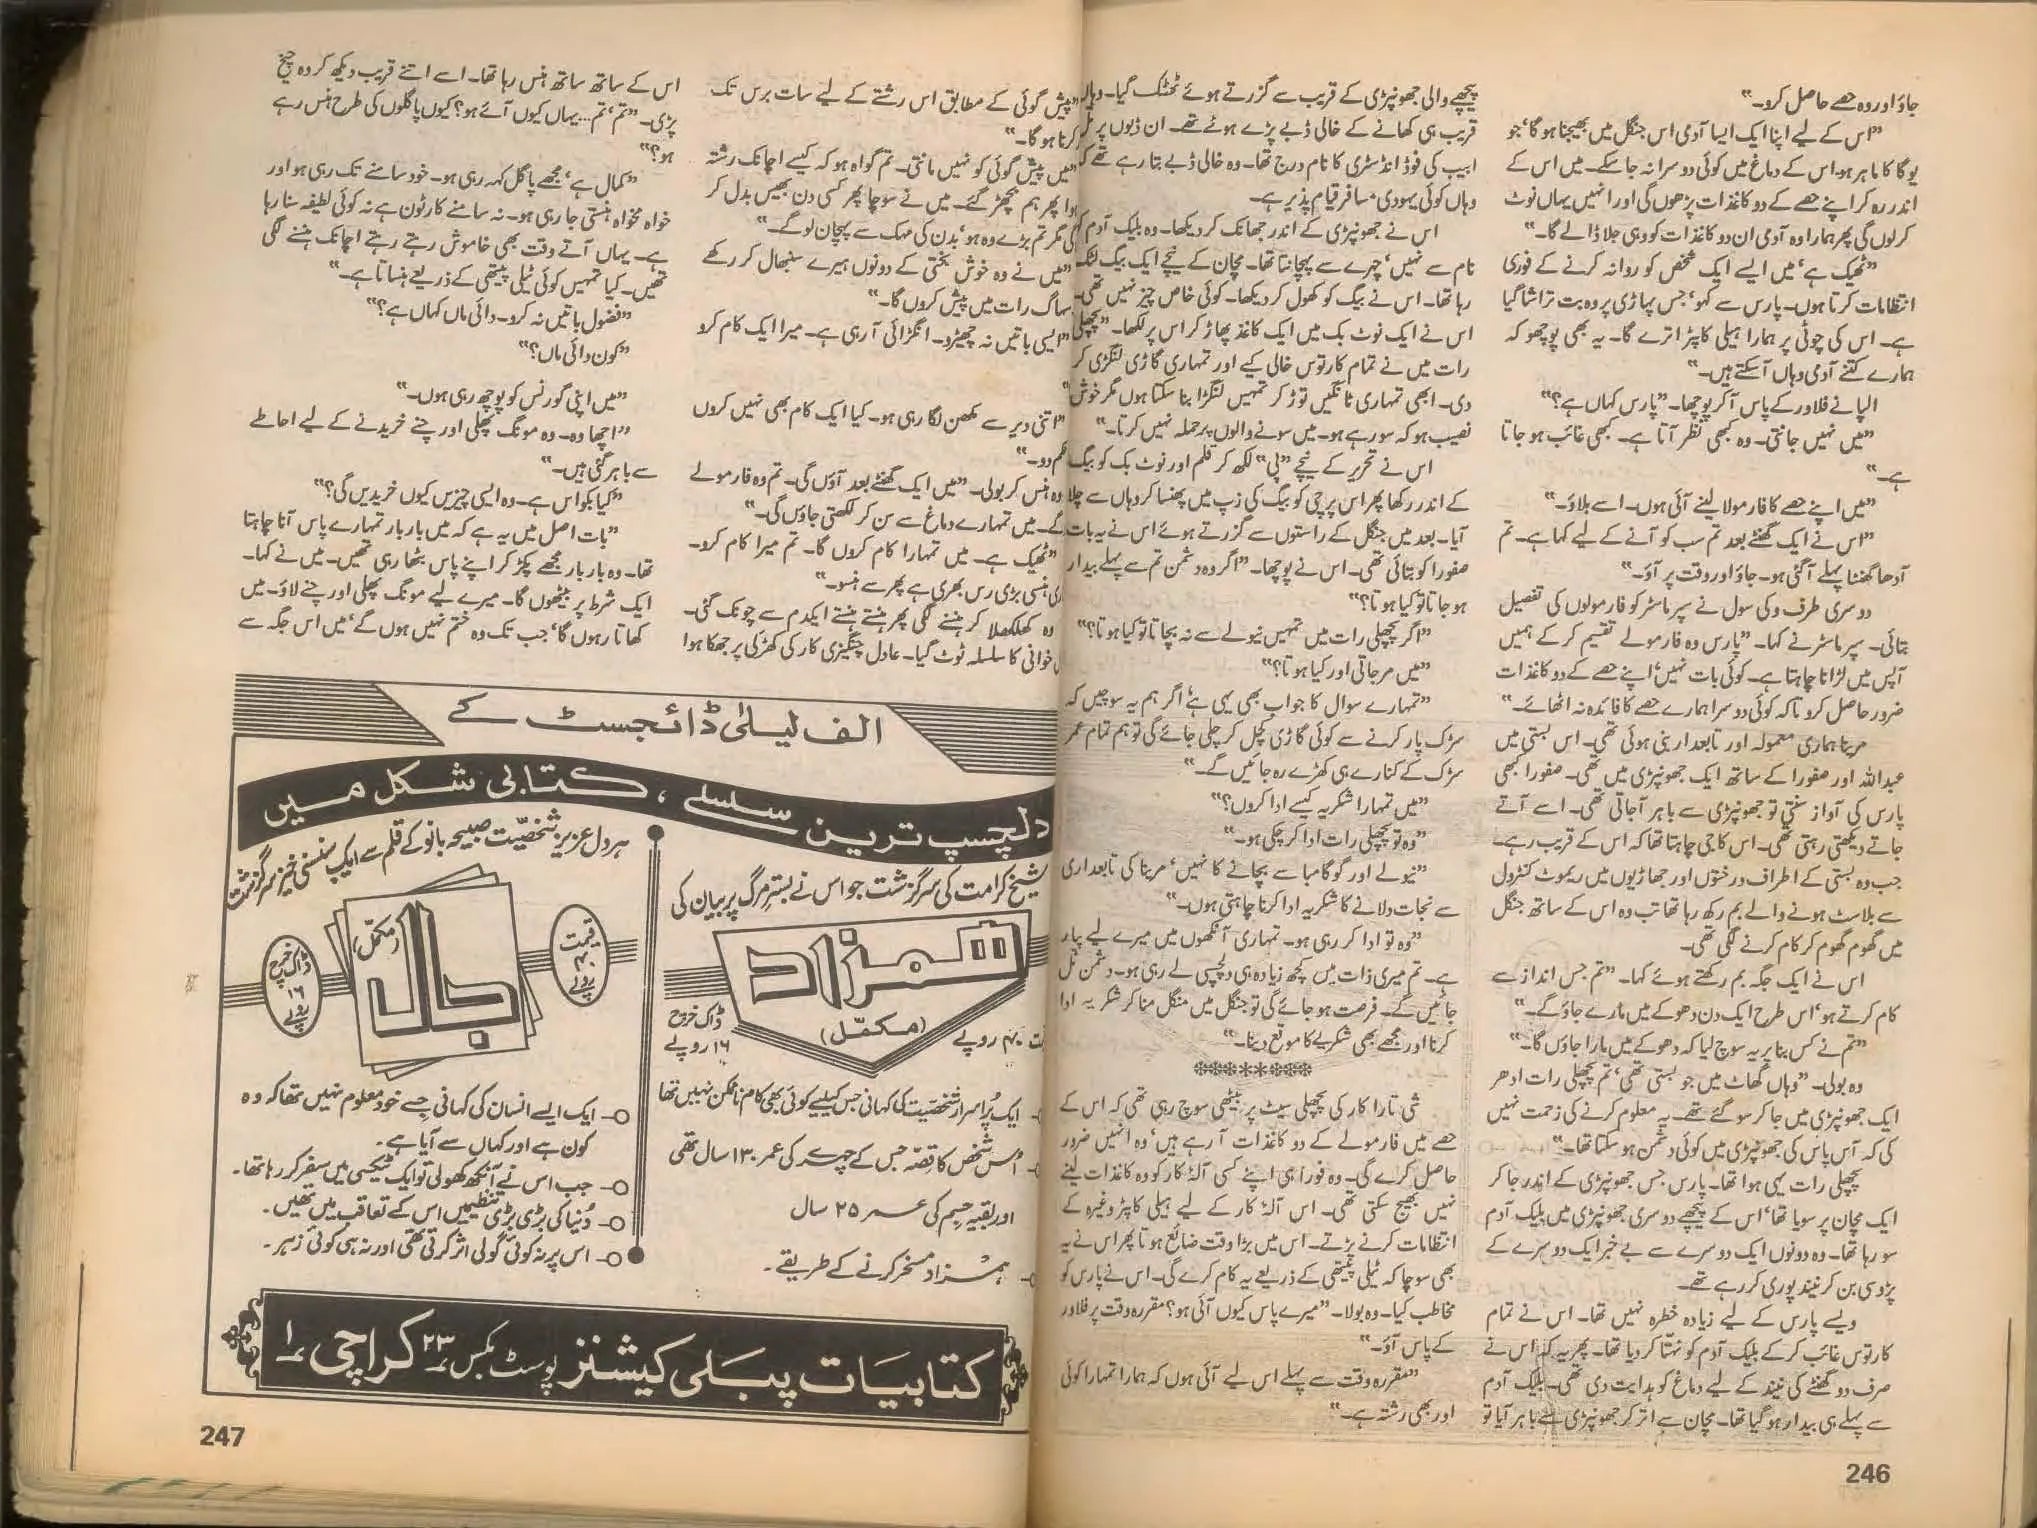 جاؤ اور وہ حصے حاصل کرو۔"
"اس کے لیے اپنا ایک ایسا آدمی اس جنگل میں بھیجنا ہو گا' جو
یوگا کا ماہر ہو' اس کے دماغ میں کوئی دوسرا نہ جا سکے۔ میں اس کے
اندر رہ کر اپنے حصے کے دو کاغذات پڑھوں گی اور انہیں یہاں نوٹ
کرلوں گی پھر ہمارا وہ آدمی ان دو کاغذات کو وہی جلا ڈالے گا۔"
"ٹھیک ہے' میں ایسے ایک شخص کو روانہ کرنے کے فوری
انتظامات کرتا ہوں۔ پارس سے کہو' جس پہاڑی پر وہ بت تراشا گیا
ہے۔ اس کی چوٹی پر ہمارا ہیلی کاپٹر اترے گا۔ یہ بھی پوچھو کہ
ہمارے کتنے آدمی وہاں آ سکتے ہیں۔"
الپا نے فلاور کے پاس آ کر پوچھا۔ "پارس کہاں ہے؟"
"میں نہیں جانتی۔ وہ کبھی نظر آتا ہے۔ کبھی غائب ہو جاتا
ہے۔"
"میں اپنے حصے کا فارمولا لینے آئی ہوں۔ اسے بلاؤ۔"
"اس نے ایک گھنٹے بعد تم سب کو آنے کے لیے کہا ہے۔ تم
آدھا گھنٹا پہلے آ گئی ہو۔ جاؤ اور وقت پر آؤ۔"
دوسری طرف وکی سول نے سپر ماسٹر کو فارمولوں کی تفصیل
بتائی۔ سپر ماسٹر نے کہا۔ "پارس وہ فارمولے تقسیم کر کے ہمیں
آپس میں لڑانا چاہتا ہے۔ کوئی بات نہیں' اپنے حصے کے دو کاغذات
ضرور حاصل کرو تاکہ کوئی دوسرا ہمارے حصے کا فائدہ نہ اٹھائے۔"
مرینا ہماری معمولہ اور تابعدار بنی ہوئی تھی۔ اس بستی میں
عبداللہ اور صفورا کے ساتھ ایک جھونپڑی میں تھی۔ صفورا کبھی
پارس کی آواز سنتی تو جھونپڑی سے باہر آ جاتی تھی۔ اسے آتے
جاتے دیکھتی رہتی تھی۔ اس کا جی چاہتا تھا کہ اس کے قریب رہے۔
جب وہ بستی کے اطراف درختوں اور جھاڑیوں میں ریموٹ کنٹرول
سے بلاسٹ ہونے والے بم رکھ رہا تھا تب وہ اس کے ساتھ جنگل
میں گھوم گھوم کر کام کرنے لگی تھی۔
اس نے ایک جگہ بم رکھتے ہوئے کہا۔ "تم جس انداز سے
کام کرتے ہو' اس طرح ایک دن دھوکے میں مارے جاؤ گے۔"
"تم نے کس بنا پر یہ سوچ لیا کہ دھوکے میں مارا جاؤں گا۔"
وہ بولی۔ "وہاں گھاٹ میں جو بستی تھی' تم پچھلی رات ادھر
ایک جھونپڑی میں جا کر سو گئے تھے۔ یہ معلوم کرنے کی زحمت نہیں
کی کہ آس پاس کی جھونپڑی میں کوئی دشمن ہو سکتا تھا۔"
پچھلی رات یہی ہوا تھا۔ پارس جس جھونپڑی کے اندر جا کر
ایک مچان پر سویا تھا' اس کے پیچھے دوسری جھونپڑی میں بلیک آدم
سو رہا تھا۔ وہ دونوں ایک دوسرے سے بے خبر ایک دوسرے کے
پڑوسی بن کر نیند پوری کر رہے تھے۔
ویسے پارس کے لیے زیادہ خطرہ نہیں تھا۔ اس نے تمام
کارتوس غائب کر کے بلیک آدم کو نہتا کر دیا تھا۔ پھر یہ کہ اس نے
صرف دو گھنٹے کی نیند کے لیے دماغ کو ہدایت دی تھی۔ بلیک آدم
سے پہلے ہی بیدار ہو گیا تھا۔ مچان سے اتر کر جھونپڑی سے باہر آیا تو
پیچھے والی جھونپڑی کے قریب سے گزرتے ہوئے ٹھٹک گیا۔ وہاں
قریب ہی کھانے کے خالی ڈبے پڑے ہوئے تھے۔ ان ڈبوں پر تل
ابیب کی فوڈ انڈسٹری کا نام درج تھا۔ وہ خالی ڈبے بتا رہے تھے کہ
وہاں کوئی یہودی مسافر قیام پذیر ہے۔
اس نے جھونپڑی کے اندر جھانک کر دیکھا۔ وہ بلیک آدم کو
نام سے نہیں' چہرے سے پہچانتا تھا۔ مچان کے نیچے ایک بیگ لٹک
رہا تھا۔ اس نے بیگ کو کھول کر دیکھا۔ کوئی خاص چیز نہیں تھی۔
اس نے ایک نوٹ بک میں ایک کاغذ پھاڑ کر اس پر لکھا۔ "پچھلی
رات میں نے تمام کارتوس خالی کیے اور تمہاری گاڑی لنگڑی کر
دی۔ ابھی تمہاری ٹانگیں توڑ کر تمہیں لنگڑا بنا سکتا ہوں مگر خوش
نصیب ہو کہ سو رہے ہو۔ میں سونے والوں پر حملہ نہیں کرتا۔"
اس نے تحریر کے نیچے "پی" لکھ کر قلم اور نوٹ بک کو بیگ
کے اندر رکھا پھر اس پرچی کو بیگ کی زپ میں پھنسا کر وہاں سے چلا
آیا۔ بعد میں جنگل کے راستوں سے گزرتے ہوئے اس نے یہ بات
صفورا کو بتائی تھی۔ اس نے پوچھا۔ "اگر وہ دشمن تم سے پہلے بیدار
ہو جاتا تو کیا ہوتا؟"
"اگر پچھلی رات میں تمہیں نیولے سے نہ بچاتا تو کیا ہوتا؟"
"میں مر جاتی اور کیا ہوتا؟"
"تمہارے سوال کا جواب بھی یہی ہے' اگر ہم یہ سوچیں کہ
سڑک پار کرنے سے کوئی گاڑی کچل کر چلی جائے گی تو ہم تمام عمر
سڑک کے کنارے ہی کھڑے رہ جائیں گے۔"
"میں تمہارا شکریہ کیسے ادا کروں؟"
"وہ تو پچھلی رات ادا کر چکی ہو۔"
"نیولے اور گوگامبا سے بچانے کا نہیں' مرینا کی تابعداری
سے نجات دلانے کا شکریہ ادا کرنا چاہتی ہوں۔"
"وہ تو ادا کر رہی ہو۔ تمہاری آنکھوں میں میرے لیے پیار
ہے۔ تم میری ذات میں کچھ زیادہ ہی دلچسپی لے رہی ہو۔ دشمن ٹل
جائیں گے۔ فرصت ہو جائے گی تو جنگل میں منگل منا کر شکریہ ادا
کرنا اور مجھے بھی شکریے کا موقع دینا۔"
********
شی تارا کار کی پچھلی سیٹ پر بیٹھی سوچ رہی تھی کہ اس کے
حصے میں فارمولے کے دو کاغذات آ رہے ہیں' وہ انہیں ضرور
حاصل کرے گی۔ وہ فوراً ہی اپنے کسی آلۂ کار کو وہ کاغذات لینے
نہیں بھیج سکتی تھی۔ اس آلۂ کار کے لیے ہیلی کاپٹر وغیرہ کے
انتظامات کرنے پڑتے۔ اس میں بڑا وقت ضائع ہوتا پھر اس نے یہ
بھی سوچا کہ ٹیلی پیتھی کے ذریعے یہ کام کرے گی۔ اس نے پارس کو
مخاطب کیا۔ وہ بولا۔ "میرے پاس کیوں آئی ہو؟ مقررہ وقت پر فلاور
کے پاس آؤ۔"
"مقررہ وقت سے پہلے اس لیے آئی ہوں کہ ہمارا تمہارا کوئی
اور بھی رشتہ ہے۔"
246
"پیش گوئی کے مطابق اس رشتے کے لیے سات برس تک
کرنا ہو گا۔"
"میں پیش گوئی کو نہیں مانتی۔ تم گواہ ہو کہ کیسے اچانک رشتہ
ہوا پھر ہم بچھڑ گئے۔ میں نے سوچا پھر کسی دن بھیس بدل کر
گی مگر تم بڑے وہ ہو' بدن کی مہک سے پہچان لو گے۔"
"میں نے وہ خوش بختی کے دونوں ہیرے سنبھال کر رکھے
سہاگ رات میں پیش کروں گا۔"
"ایسی باتیں نہ چھیڑو۔ انگڑائی آ رہی ہے۔ میرا ایک کام کرو
"اتنی دیر سے مکھن لگا رہی ہو۔ کیا ایک کام بھی نہیں کروں
دو۔"
وہ ہنس کر بولی۔ "میں ایک گھنٹے بعد آؤں گی۔ تم وہ فارمولے
گے۔ میں تمہارے دماغ سے سن کر لکھتی جاؤں گی۔"
"ٹھیک ہے۔ میں تمہارا کام کروں گا۔ تم میرا کام کرو۔
ری ہنسی بڑی رس بھری ہے پھر سے ہنسو۔"
وہ کھلکھلا کر ہنسنے لگی پھر ہنستے ہنستے ایکدم سے چونک گئی۔
خوانی کا سلسلہ ٹوٹ گیا۔ عادل چنگیزی کار کی کھڑکی پر جھکا ہوا
اس کے ساتھ ساتھ ہنس رہا تھا۔ اسے اتنے قریب دیکھ کر وہ چیخ
پڑی۔ "تم' تم... یہاں کیوں آئے ہو؟ کیوں پاگلوں کی طرح ہنس رہے
ہو؟"
"کمال ہے' مجھے پاگل کہہ رہی ہو۔ خود سامنے تک رہی ہو اور
خواہ مخواہ ہنستی جا رہی ہو۔ نہ سامنے کارٹون ہے نہ کوئی لطیفہ سنا رہا
ہے۔ یہاں آتے وقت بھی خاموش رہتے رہتے اچانک ہنسنے لگی
تھیں۔ کیا تمہیں کوئی ٹیلی پیتھی کے ذریعے ہنساتا ہے۔"
"فضول باتیں نہ کرو۔ دائی ماں کہاں ہے؟"
"کون دائی ماں؟"
"میں اپنی گورنس کو پوچھ رہی ہوں۔"
"اچھا وہ۔ وہ مونگ پھلی اور چنے خریدنے کے لیے احاطے
سے باہر گئی ہیں۔"
"کیا بکواس ہے۔ وہ ایسی چیزیں کیوں خریدیں گی؟"
"بات اصل میں یہ ہے کہ میں بار بار تمہارے پاس آنا چاہتا
تھا۔ وہ بار بار مجھے پکڑ کر اپنے پاس بٹھا رہی تھیں۔ میں نے کہا۔
ایک شرط پر بیٹھوں گا۔ میرے لیے مونگ پھلی اور چنے لاؤ۔ میں
کھاتا رہوں گا' جب تک وہ ختم نہیں ہوں گے' میں اس جگہ سے
الف لیلیٰ ڈائجسٹ کے
دلچسپ ترین سلسلے ، کتابی شکل میں
شیخ کرامت کی سرگزشت جو اس نے بسترِ مرگ پر بیان کی
ہمزاد
(مکمّل)
ت ۴۰ روپے
ڈاک خرچ
۱۶ روپے
ایک پُراسرار شخصیّت کی کہانی جس کیلئے کوئی بھی کام ناممکن نہیں تھا
اُس شخص کا قصّہ جس کے چہرے کی عمر ۱۳۰ سال تھی
اور بقیہ جسم کی عمر ۲۵ سال
ہمزاد مسخر کرنے کے طریقے۔
ہر دل عزیز شخصیّت صبیحہ بانو کے قلم سے ایک سنسنی خیز سرگزشت
جال
(مکمّل)
قیمت
۴۰
روپے
ڈاک خرچ
۱۶
روپے
ایک ایسے انسان کی کہانی جسے خود معلوم نہیں تھا کہ وہ
کون ہے اور کہاں سے آیا ہے۔
جب اس نے آنکھ کھولی تو ایک ٹیکسی میں سفر کر رہا تھا۔
دُنیا کی بڑی بڑی تنظیمیں اس کے تعاقب میں تھیں۔
اس پر نہ کوئی گولی اثر کرتی تھی اور نہ ہی کوئی زہر۔
کتابیات پبلی کیشنز پوسٹ بکس ۲۳ کراچی ۱
247